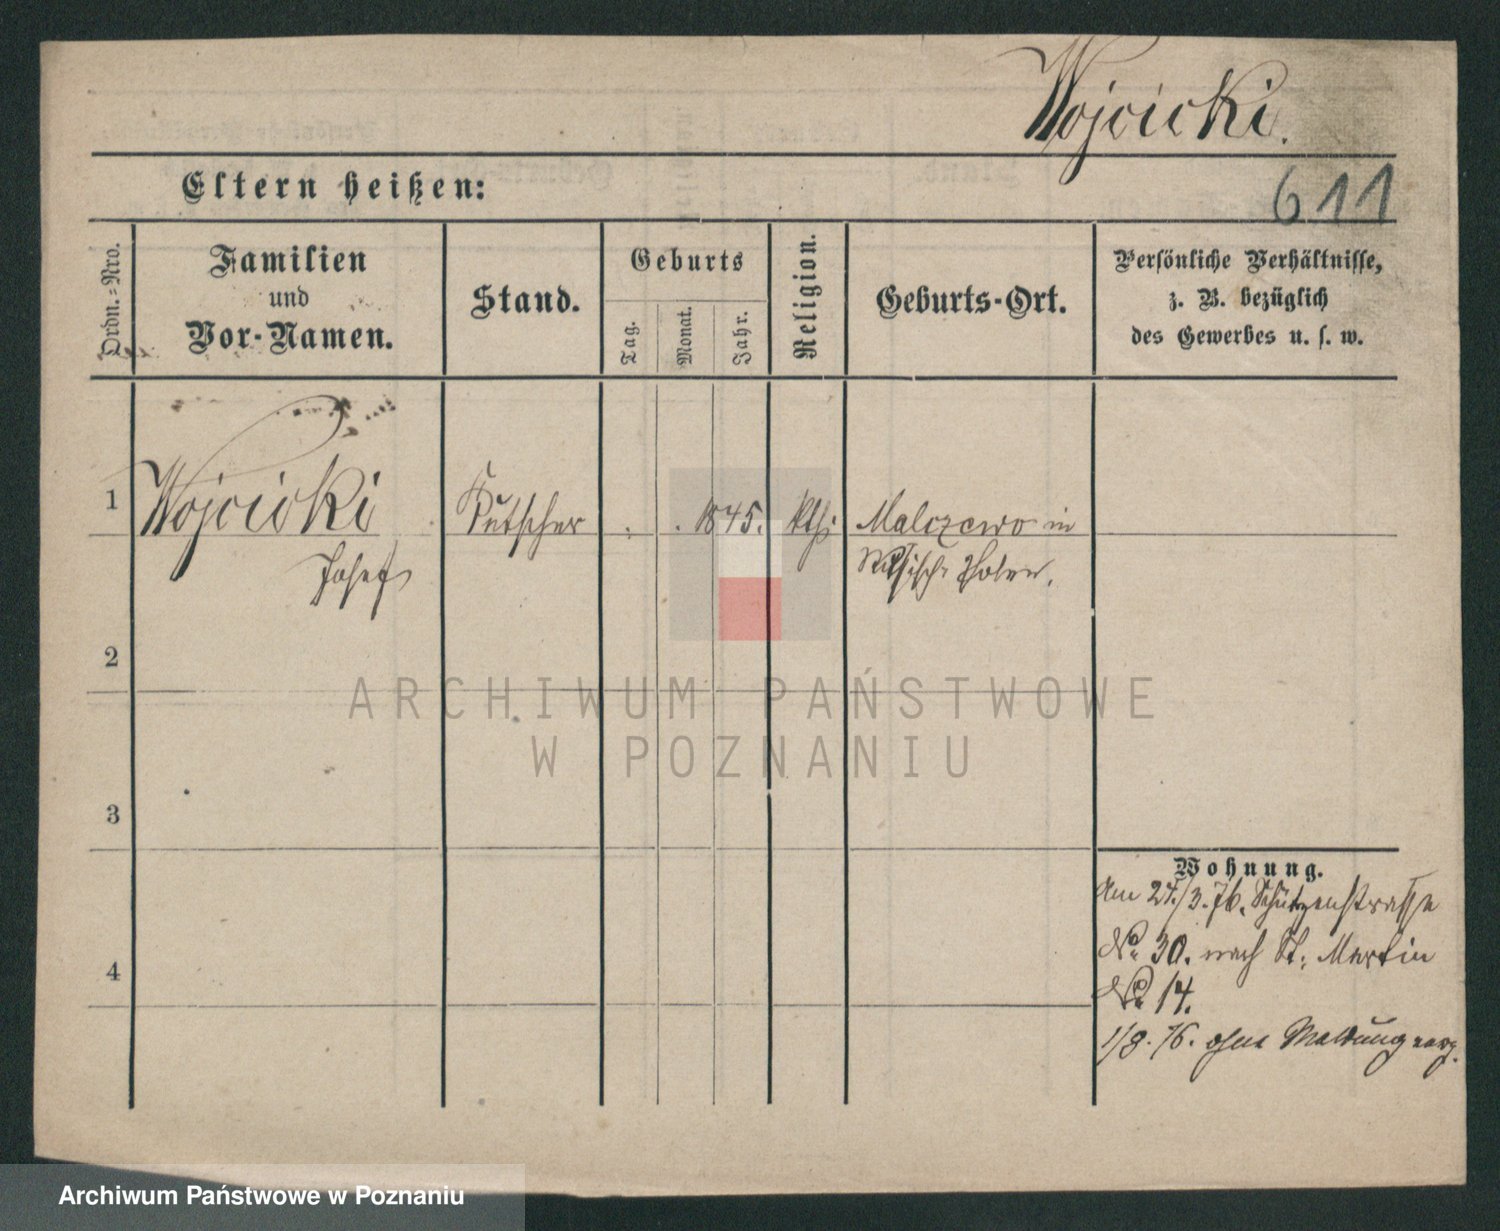 Wojcicki.
Eltern heißen:
611
Ordn.-Nro.
Familien
und
Vor-Namen.
Stand.
Geburts
Tag.
Monat.
Jahr.
Religion.
Geburts-Ort.
Persönliche Verhältnisse,
z. B. bezüglich
des Gewerbes u. s. w.
1 Wojcicki Kutscher . . 1845. kth: Malczewo in
Josef Russisch Polen.
2
ARCHIWUM PAŃSTWOWE
W POZNANIU
3
Wohnung.
Am 24./3.76. Schützenstrasse
No 30. nach St. Martin
4
No 14.
1/8.76. ohne Meldung verz.
Archiwum Państwowe w Poznaniu